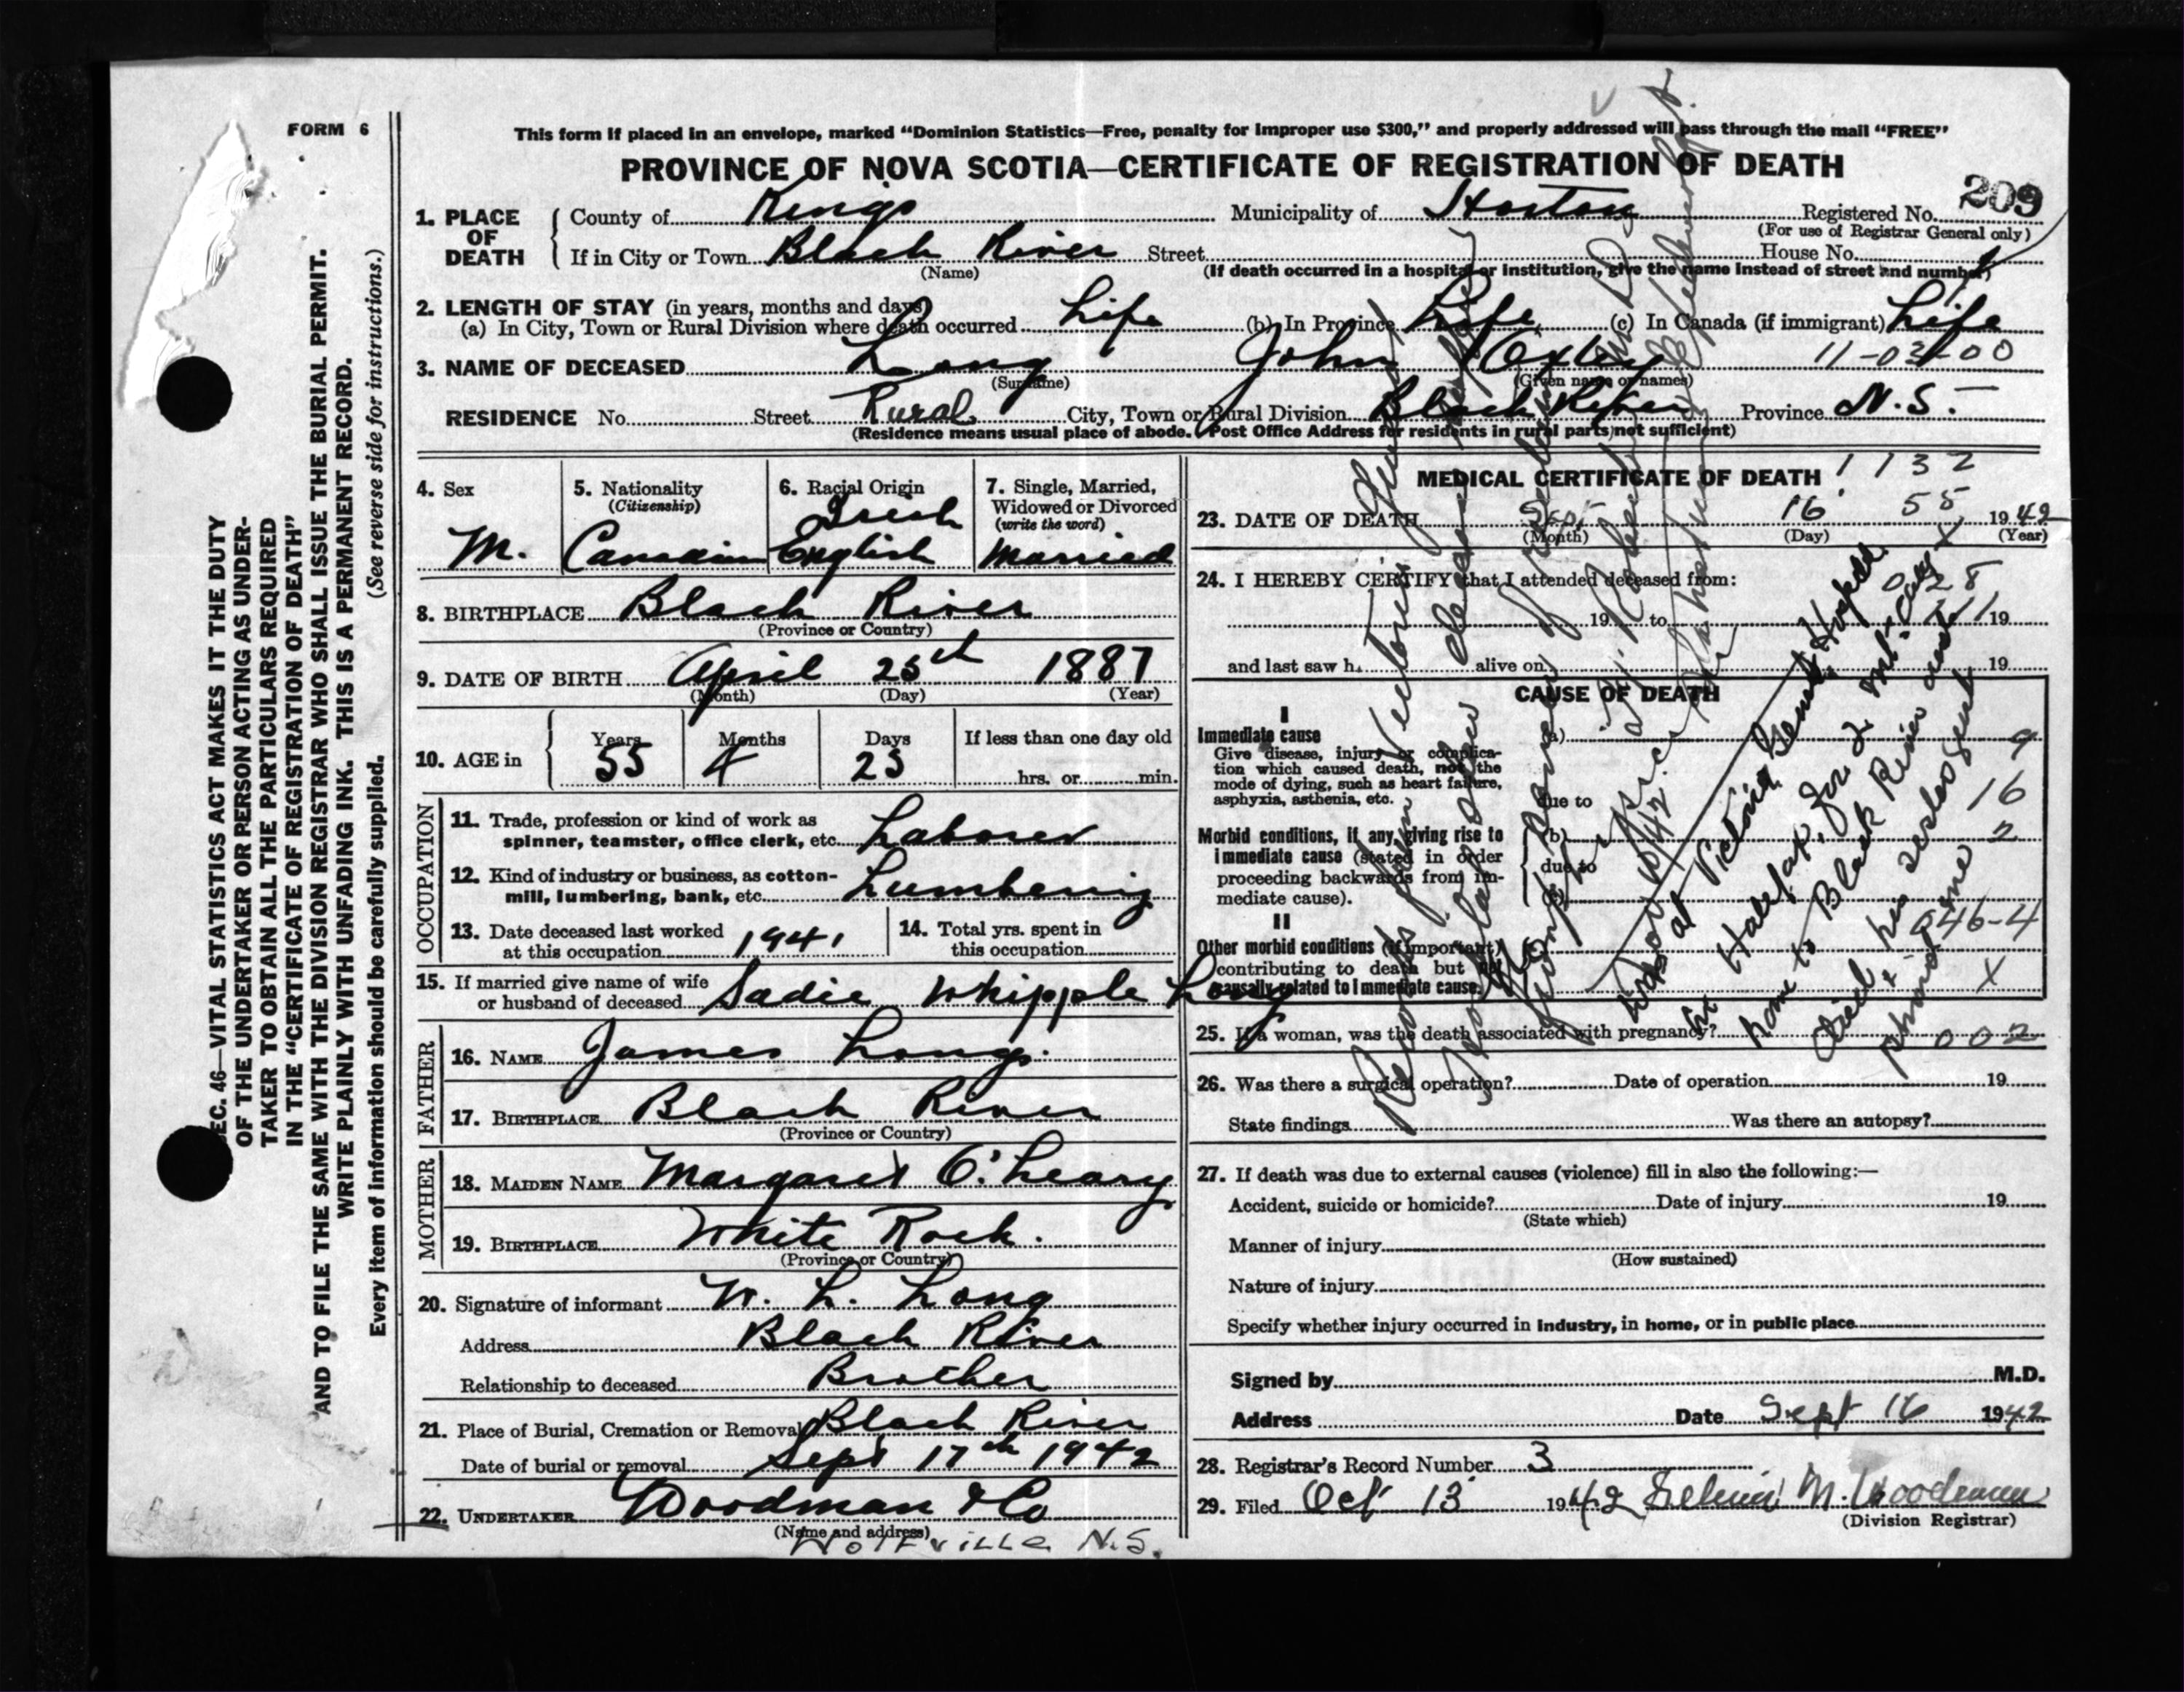 FORM 6
This form if placed in an envelope, marked “Dominion Statistics—Free, penalty for improper use $300,” and properly addressed will pass through the mail “FREE”
PROVINCE OF NOVA SCOTIA—CERTIFICATE OF REGISTRATION OF DEATH
SEC. 46—VITAL STATISTICS ACT MAKES IT THE DUTY
OF THE UNDERTAKER OR PERSON ACTING AS UNDER-
TAKER TO OBTAIN ALL THE PARTICULARS REQUIRED
IN THE “CERTIFICATE OF REGISTRATION OF DEATH”
AND TO FILE THE SAME WITH THE DIVISION REGISTRAR WHO SHALL ISSUE THE BURIAL PERMIT.
WRITE PLAINLY WITH UNFADING INK. THIS IS A PERMANENT RECORD.
Every item of information should be carefully supplied. (See reverse side for instructions.)
1. PLACE OF DEATH County of Kings Municipality of Horton Registered No. 209
(For use of Registrar General only)
If in City or Town Black River Street House No.
(Name) (If death occurred in a hospital or institution, give the name instead of street and number)
2. LENGTH OF STAY (in years, months and days)
(a) In City, Town or Rural Division where death occurred Life (b) In Province Life (c) In Canada (if immigrant) Life
3. NAME OF DECEASED Long John Oxley 11-03-00
(Surname) (Given name or names)
RESIDENCE No. Street Rural City, Town or Rural Division Black River Province N.S.
(Residence means usual place of abode. Post Office Address for residents in rural parts not sufficient)
4. Sex 5. Nationality 6. Racial Origin 7. Single, Married,
(Citizenship) Irish Widowed or Divorced
(write the word)
M. Canadian English Married
8. BIRTHPLACE Black River
(Province or Country)
9. DATE OF BIRTH April 25th 1887
(Month) (Day) (Year)
10. AGE in Years Months Days If less than one day old
55 4 23 hrs. or min.
OCCUPATION
11. Trade, profession or kind of work as
spinner, teamster, office clerk, etc. Laborer
12. Kind of industry or business, as cotton-
mill, lumbering, bank, etc. Lumbering
13. Date deceased last worked 14. Total yrs. spent in
at this occupation 1941 this occupation
15. If married give name of wife
or husband of deceased Sadie Whipple Long
FATHER
16. NAME James Long
17. BIRTHPLACE Black River
(Province or Country)
MOTHER
18. MAIDEN NAME Margaret O'Leary
19. BIRTHPLACE White Rock.
(Province or Country)
20. Signature of informant W. L. Long
Address Black River
Relationship to deceased Brother
21. Place of Burial, Cremation or Removal Black River
Date of burial or removal Sept 17th 1942
22. UNDERTAKER Woodman & Co
(Name and address)
Wolfville N.S.
MEDICAL CERTIFICATE OF DEATH 1132
23. DATE OF DEATH Sept 16 55 1942
(Month) (Day) (Year)
24. I HEREBY CERTIFY that I attended deceased from:
028
19 to 19
and last saw h alive on 19
CAUSE OF DEATH
I
Immediate cause (a)
Give disease, injury or complica-
tion which caused death, not the
mode of dying, such as heart failure,
asphyxia, asthenia, etc.
due to
9
16
Morbid conditions, if any, giving rise to (b) 2
immediate cause (stated in order due to
proceeding backwards from im- (c)
mediate cause).
II
Other morbid conditions (if important) 046-4
contributing to death but not
causally related to immediate cause. X
Was at Victoria General Hospital
in Halifax, for 2
home to Black River
died
25. If a woman, was the death associated with pregnancy? 002
26. Was there a surgical operation? Date of operation 19
State findings Was there an autopsy?
27. If death was due to external causes (violence) fill in also the following:—
Accident, suicide or homicide? Date of injury 19
(State which)
Manner of injury
(How sustained)
Nature of injury
Specify whether injury occurred in industry, in home, or in public place
Signed by M.D.
Address Date Sept 16 1942
28. Registrar's Record Number 3
29. Filed Oct 13 1942 M. Woodman
(Division Registrar)